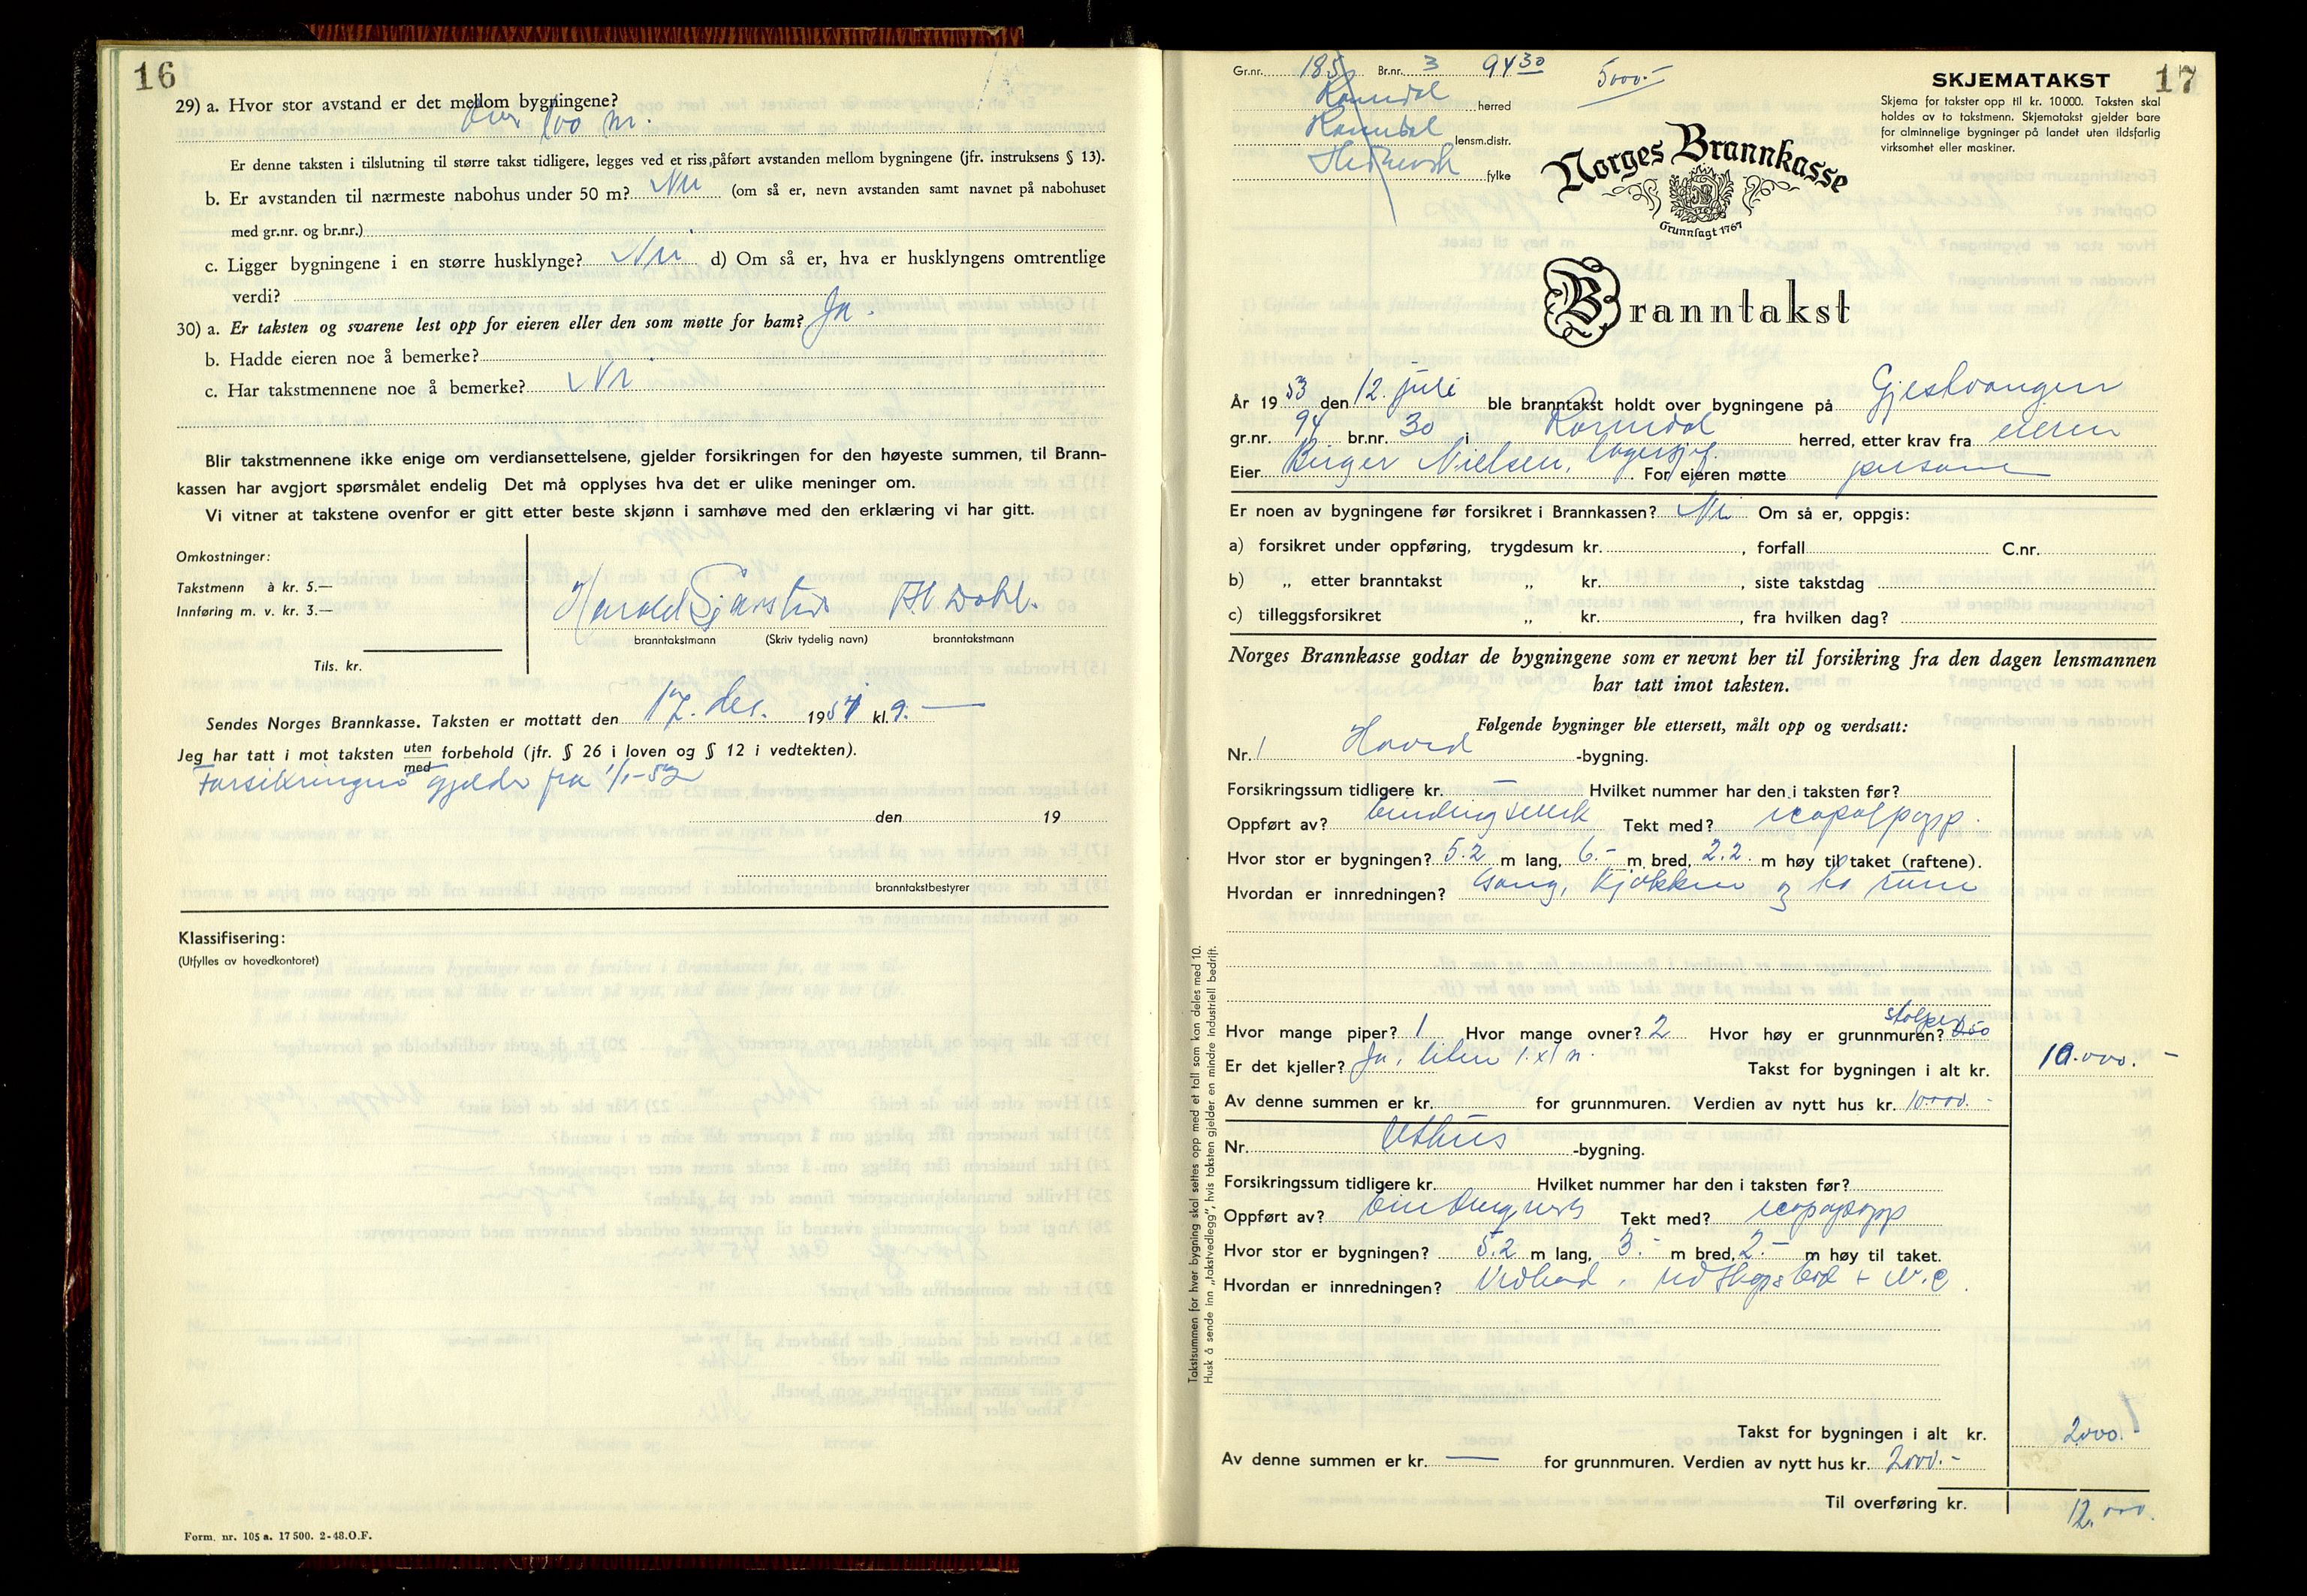 16
29) a. Hvor stor avstand er det mellom bygningene?
100 m.
Er denne taksten i tilslutning til større takst tidligere, legges ved et riss, påført avstanden mellom bygningene (jfr. instruksens § 13).
b. Er avstanden til nærmeste nabohus under 50 m? Nei (om så er, nevn avstanden samt navnet på nabohuset
med gr.nr. og br.nr.)
c. Ligger bygningene i en større husklynge? Nei d) Om så er, hva er husklyngens omtrentlige
verdi?
30) a. Er taksten og svarene lest opp for eieren eller den som møtte for ham? Ja.
b. Hadde eieren noe å bemerke?
c. Har takstmennene noe å bemerke? Nei
Blir takstmennene ikke enige om verdiansettelsene, gjelder forsikringen for den høyeste summen, til Brann-
kassen har avgjort spørsmålet endelig Det må opplyses hva det er ulike meninger om.
Vi vitner at takstene ovenfor er gitt etter beste skjønn i samhøve med den erklæring vi har gitt.
Omkostninger:
Takstmenn à kr. 5.—
Innføring m. v. kr. 3.—
Tils. kr.
Harald
branntakstmann (Skriv tydelig navn) branntakstmann
Sendes Norges Brannkasse. Taksten er mottatt den 17. des. 1951 kl. 9.—
Jeg har tatt i mot taksten uten forbehold (jfr. § 26 i loven og § 12 i vedtekten).
med
Forsikringen gjelder fra 1/1-52
den 19
branntakstbestyrer
Klassifisering:
(Utfylles av hovedkontoret)
Form. nr. 105 a. 17 500. 2-48. O.F.
17
Gr.nr. 185 Br.nr. 3 94 30 5000.-
Romedal herred
Romedal lensm.distr.
Hedmark fylke
SKJEMATAKST
Skjema for takster opp til kr. 10 000. Taksten skal
holdes av to takstmenn. Skjematakst gjelder bare
for alminnelige bygninger på landet uten ildsfarlig
virksomhet eller maskiner.
Norges Brannkasse
Grunnlagt 1767
Branntakst
År 1953 den 12. juli ble branntakst holdt over bygningene på Gjestvangen
gr.nr. 94 br.nr. 30 i Romedal herred, etter krav fra eieren
Eier Birger Nielsen, lagersjef. For eieren møtte
Er noen av bygningene før forsikret i Brannkassen? Nei Om så er, oppgis:
a) forsikret under oppføring, trygdesum kr. , forfall C.nr.
b) „ etter branntakst „ kr. , siste takstdag
c) tilleggsforsikret „ kr. , fra hvilken dag?
Norges Brannkasse godtar de bygningene som er nevnt her til forsikring fra den dagen lensmannen
har tatt imot taksten.
Følgende bygninger ble ettersett, målt opp og verdsatt:
Nr. 1 Hoved -bygning.
Forsikringssum tidligere kr. — Hvilket nummer har den i taksten før?
Oppført av? bindingsverk Tekt med? icopalpapp.
Hvor stor er bygningen? 5.2 m lang, 6.- m bred, 2.2. m høy til taket (raftene).
Hvordan er innredningen? Gang, kjøkken og to rum
Hvor mange piper? 1 Hvor mange ovner? 2 Hvor høy er grunnmuren? stolper 0.50
Er det kjeller? Ja, liten 1x1 m. Takst for bygningen i alt kr. 10.000.-
Av denne summen er kr. for grunnmuren. Verdien av nytt hus kr. 10000.-
Nr. Uthus -bygning.
Forsikringssum tidligere kr. Hvilket nummer har den i taksten før?
Oppført av? bindingsverk Tekt med? icopalpapp
Hvor stor er bygningen? 5.2 m lang, 3.- m bred, 2.- m høy til taket.
Hvordan er innredningen? Vedbod, redskapsbod + W.C.
Takst for bygningen i alt kr. 2000.
Av denne summen er kr. — for grunnmuren. Verdien av nytt hus kr. 2000.-
Til overføring kr. 12.000.
Takstsummen for hver bygning skal settes opp med et tall som kan deles med 10.
Husk å sende inn „takstvedlegg", hvis taksten gjelder en mindre industriell bedrift.